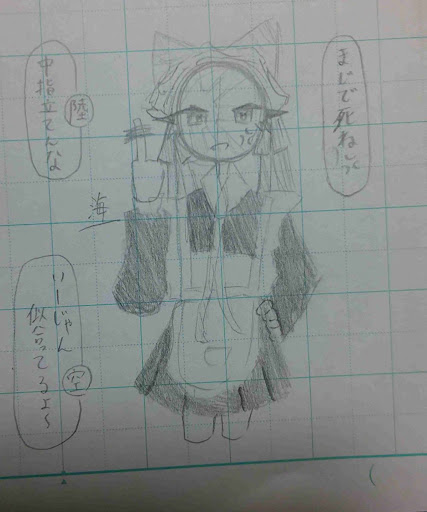 まじで死ね
陸
中指立てんな
海
空
いーじゃん
似合ってるよ〜